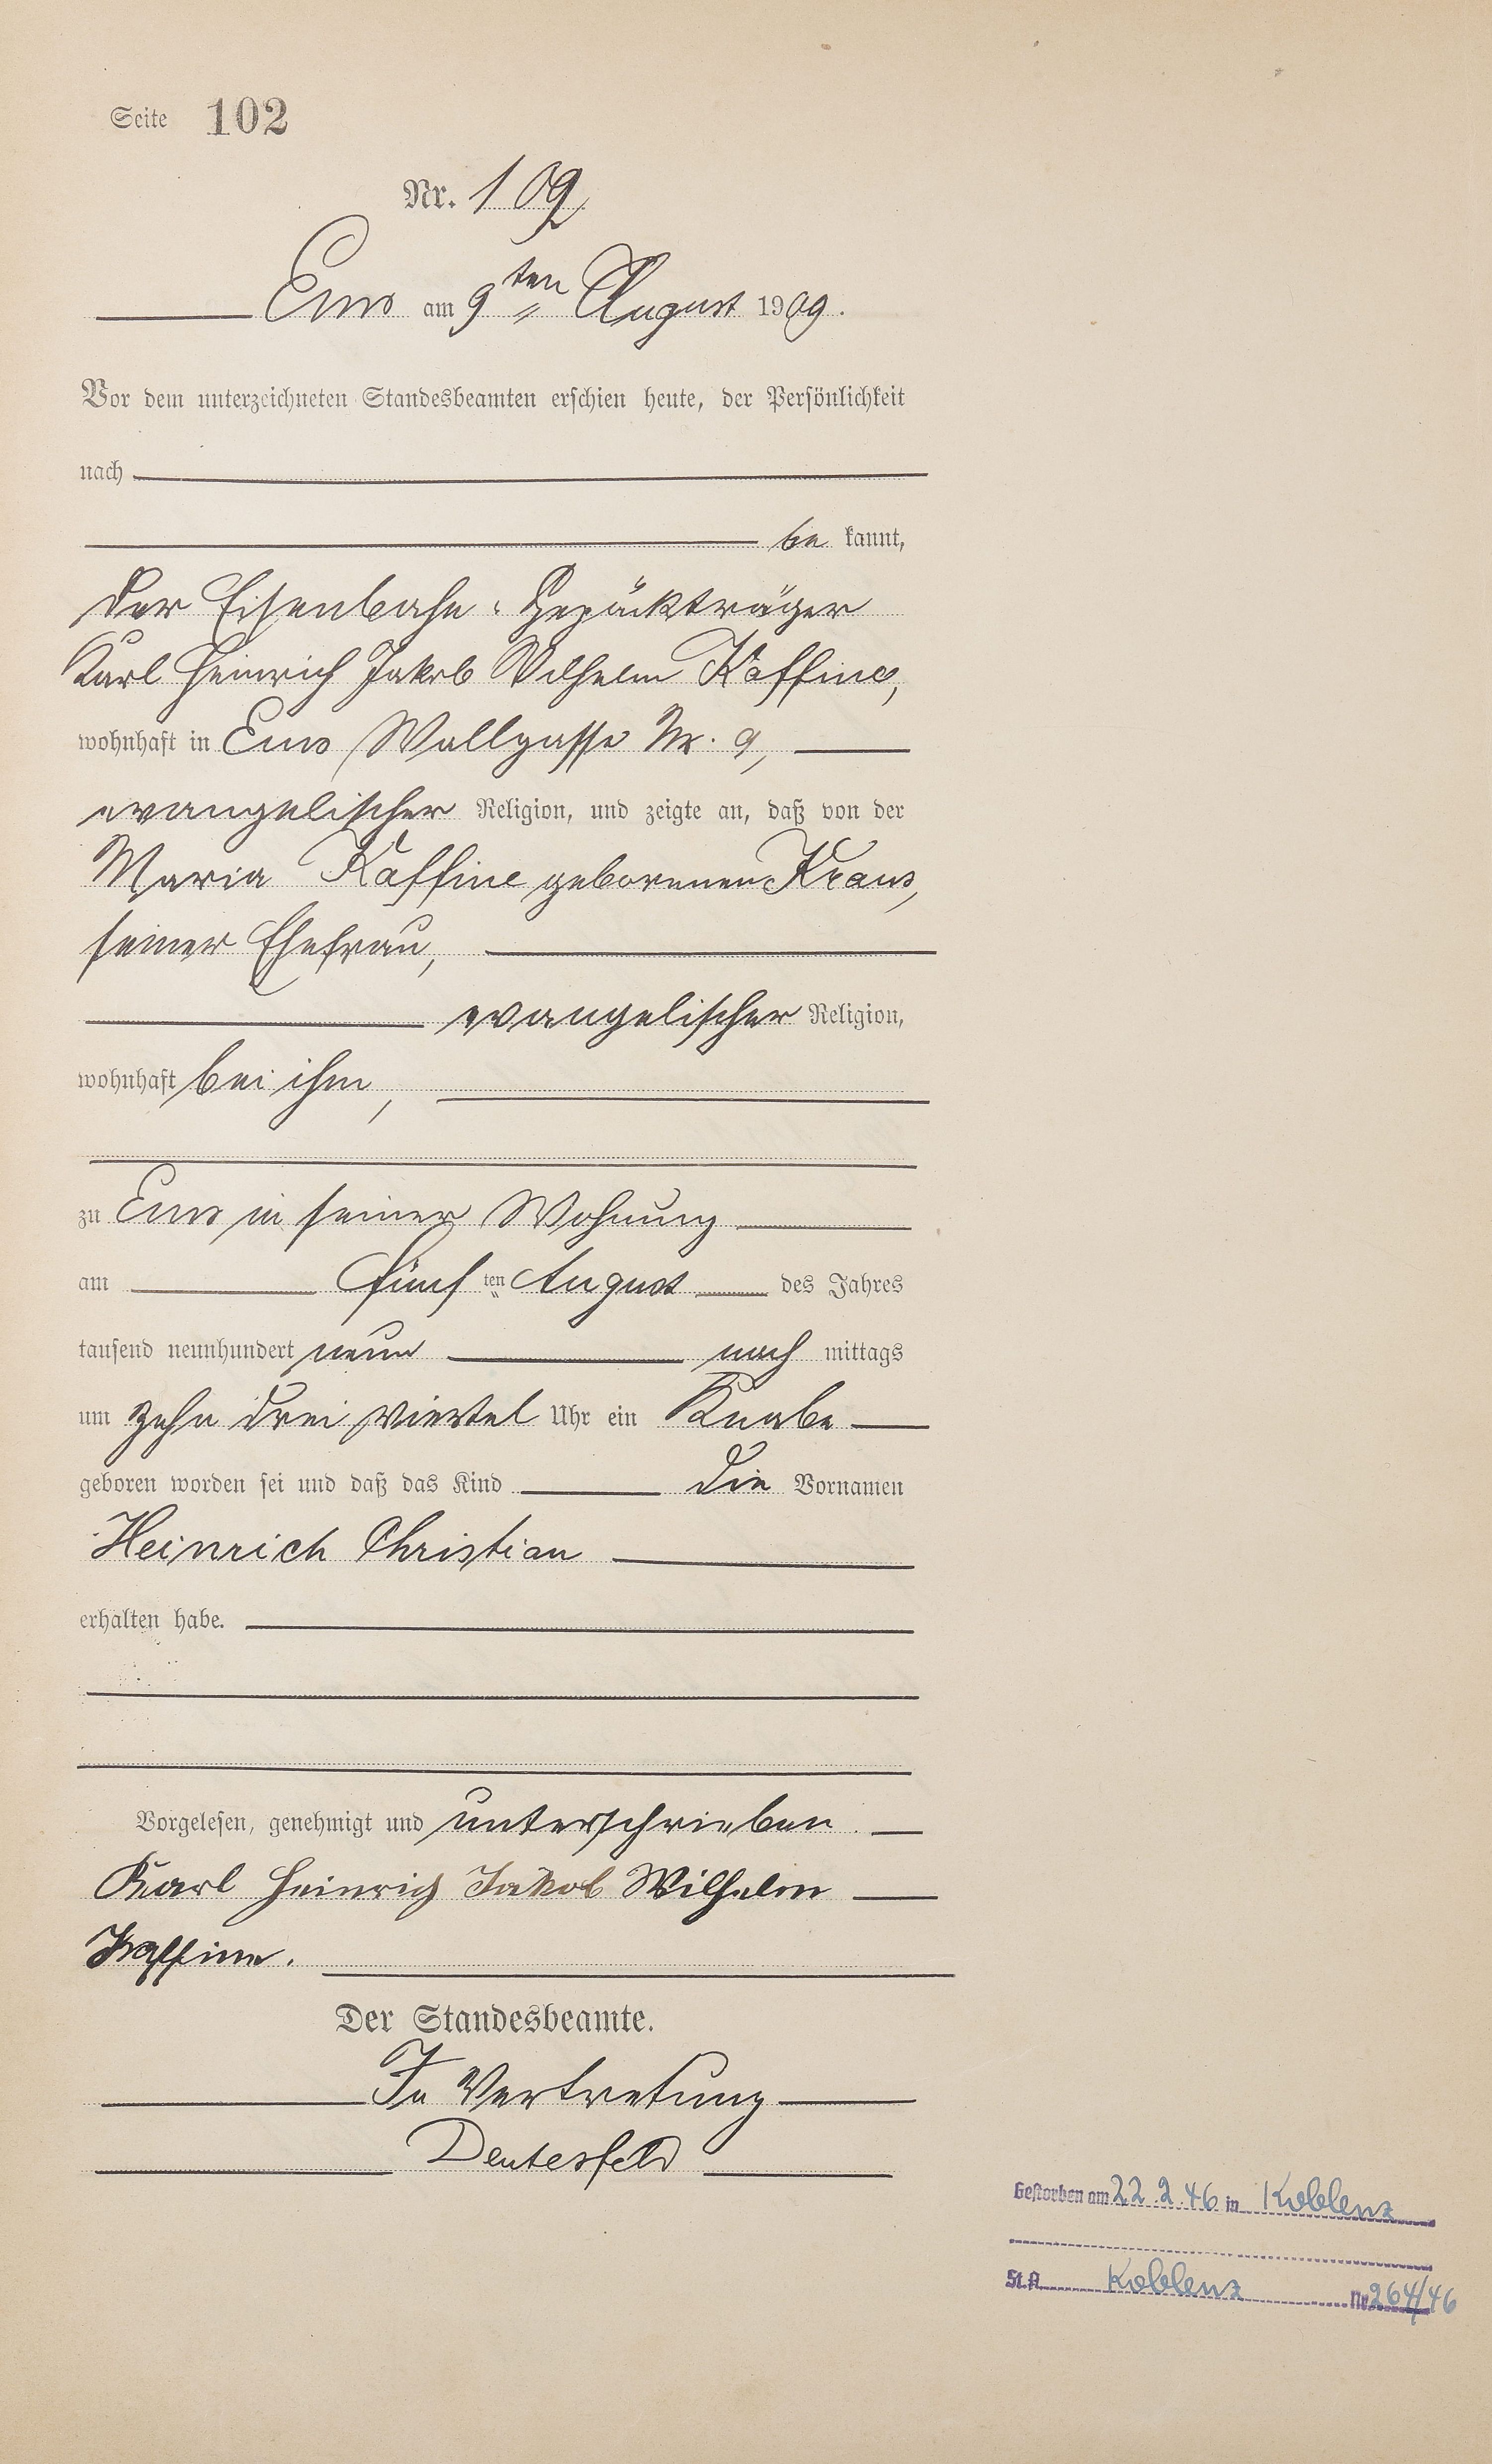 Seite 102
Nr. 109
Ems am 9ten August 1909.
Vor dem unterzeichneten Standesbeamten erschien heute, der Persönlichkeit
nach
be kannt,
der Eisenbahn-Gepäckträger
Karl Heinrich Jakob Wilhelm Kaffine,
wohnhaft in Ems, Wallgasse Nr. 9,
evangelischer Religion, und zeigte an, daß von der
Maria Kaffine geborenen Kraus,
seiner Ehefrau,
evangelischer Religion,
wohnhaft bei ihm,
zu Ems in seiner Wohnung
am fünf ten August des Jahres
tausend neunhundert neun nach mittags
um zehn drei viertel Uhr ein Knabe
geboren worden sei und daß das Kind die Vornamen
Heinrich Christian
erhalten habe.
Vorgelesen, genehmigt und unterschrieben.
Karl Heinrich Jakob Wilhelm
Kaffine.
Der Standesbeamte.
In Vertretung
Deutesfeld
Gestorben am 22.2.46 in Koblenz
St.A. Koblenz Nr. 264/46